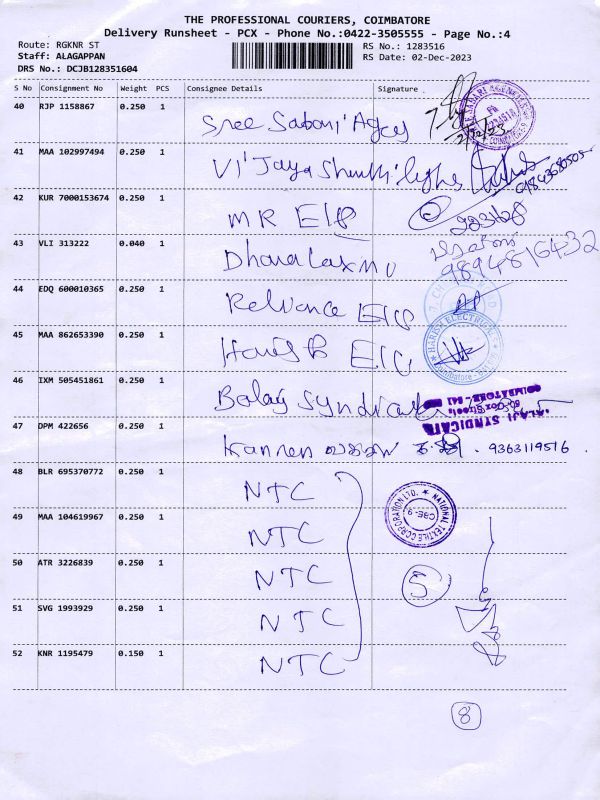 THE PROFESSIONAL COURIERS, COIMBATORE
Delivery Runsheet - PCX - Phone No.:0422-3505555 - Page No.:4
Route: RGKNR ST RS No.: 1283516
Staff: ALAGAPPAN RS Date: 02-Dec-2023
DRS No.: DCJB128351604
S No Consignment No Weight PCS Consignee Details Signature
40 RJP 1158867 0.250 1 Sree Sabari Agcy 2/12/23
41 MAA 102997494 0.250 1 Vijaya
42 KUR 7000153674 0.250 1 MR
43 VLI 313222 0.040 1 Dhana Laxmi 9894816432
44 EDQ 600010365 0.250 1 Reliance
45 MAA 862653390 0.250 1 Harish HARISH ELECTRICALS
46 IXM 505451861 0.250 1 Balaji Syndicate BALAJI SYNDICATE
47 DPM 422656 0.250 1 Kannan 9363119516
48 BLR 695370772 0.250 1 NTC
NATIONAL TEXTILE CORPORATION LTD. CBE-9
49 MAA 104619967 0.250 1 NTC
50 ATR 3226839 0.250 1 NTC 5
51 SVG 1993929 0.250 1 NTC
52 KNR 1195479 0.150 1 NTC
8